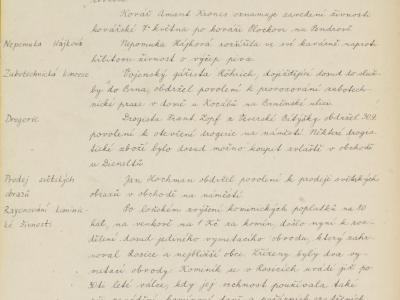 Kovář Amant Krones oznamuje zavedení živnosti
kovářské 7. května po kováři Flockovi na Pendrově
Nepomuka Hájková
Nepomuka Hájková rozšířila ve své kavárně naproti
biliárům živnost o výčep piva.
Zubotechnická koncese
Vojenský gážista Köhrich, dojíždějící dosud do služ-
by do Brna, obdržel povolení k provozování zubotech-
nické praxe v domě u Kocábů na Brněnské ulici.
Drogerie
Drogista Frant. Zopf z Veverské Bitýšky obdržel 30.9.
povolení k otevření drogerie na náměstí. Některé droge-
tické zboží bylo dosud možno koupit zvláště v obchodě
u Dieneltů
Prodej světských
obrazů
Jan Hochman obdržel povolení k prodeji světských
obrazů v obchodě na náměstí.
Rayonování kominic-
ké živnosti
Po loňském zvýšení kominických poplatků na 80
hal, na venkově na 1 Kč za komín, došlo nyní k roz-
dělení dosud jediného vymetacího obvodu, který zahr-
noval Rosice a nejbližší obce. Zřízeny byly dva vy-
metací obvody. Kominík se v Rosicích uvádí již po
sto let vůkol, kdy jej vrchnost používala také